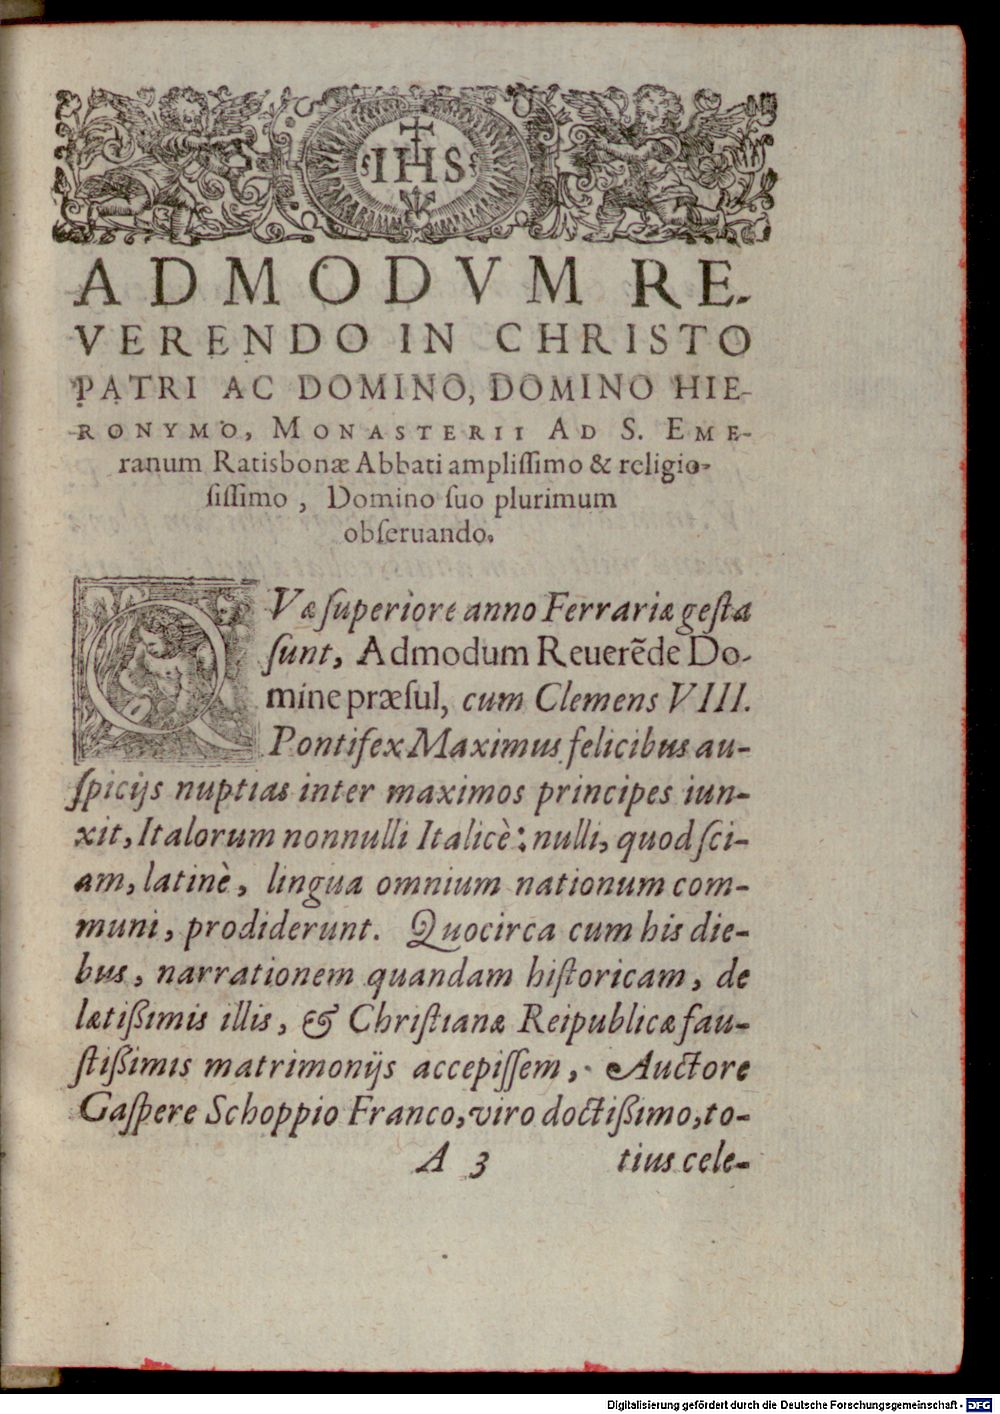 IHS
ADMODVM RE-
VERENDO IN CHRISTO
PATRI AC DOMINO, DOMINO HIE-
RONYMO, MONASTERII AD S. EME-
ranum Ratisbonæ Abbati ampliſſimo & religio-
ſiſſimo, Domino ſuo plurimum
obſeruando.
QVæ ſuperiore anno Ferrariæ geſta
ſunt, Admodum Reuerẽde Do-
mine præſul, cum Clemens VIII.
Pontifex Maximus felicibus au-
ſpicijs nuptias inter maximos principes iun-
xit, Italorum nonnulli Italicè: nulli, quod ſci-
am, latinè, lingua omnium nationum com-
muni, prodiderunt. Quocirca cum his die-
bus, narrationem quandam hiſtoricam, de
lætißimis illis, & Chriſtianæ Reipublicæ fau-
ſtißimis matrimonijs accepiſſem, Auctore
Gaſpere Schoppio Franco, viro doctißimo, to-
A 3 tius cele-
Digitalisierung gefördert durch die Deutsche Forschungsgemeinschaft - DFG